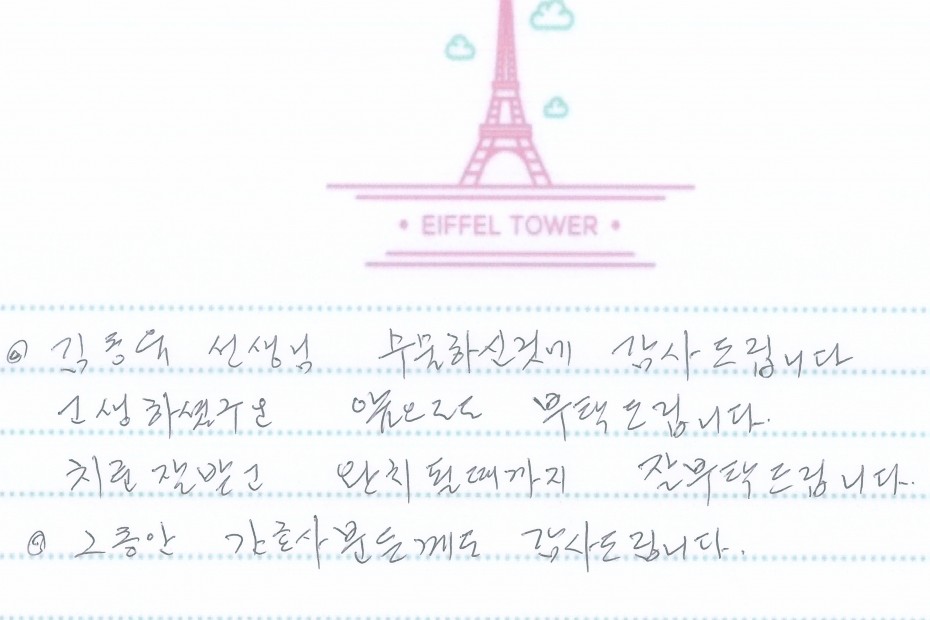 • EIFFEL TOWER •
◎ 김동욱 선생님 수고하신것에 감사드립니다
고생하셨구요 앞으로도 부탁드립니다.
치료잘받고 완치될때까지 잘부탁드립니다.
◎ 그동안 간호사분들께도 감사드립니다.